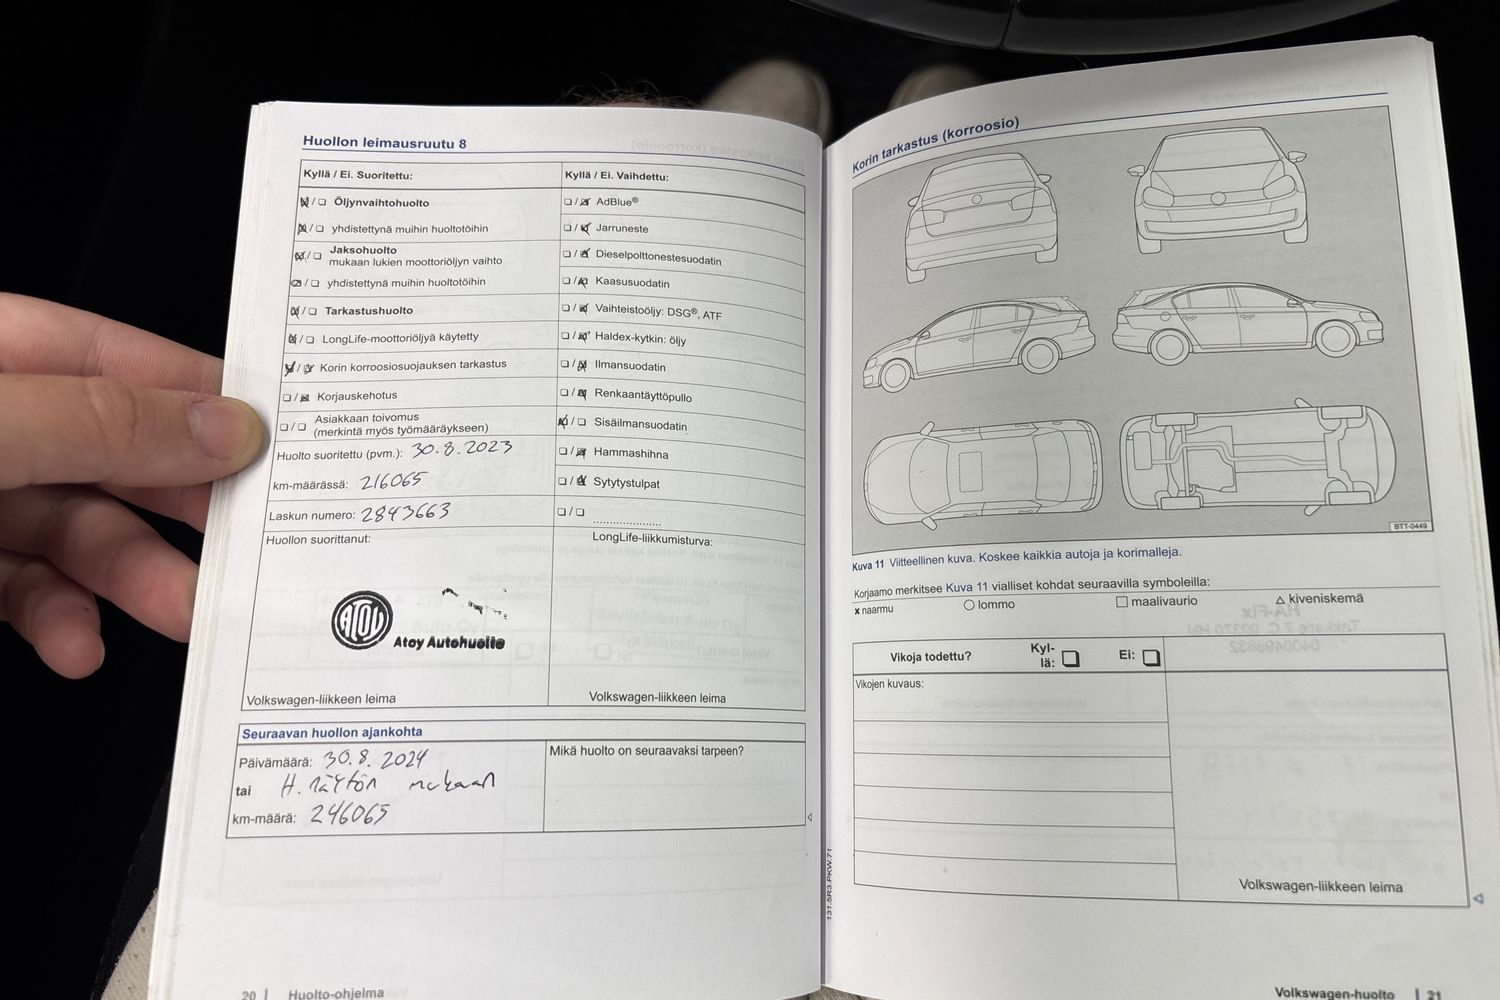 Huollon leimausruutu 8
Kyllä / Ei. Suoritettu:
Öljynvaihtohuolto
yhdistettynä muihin huoltotöihin
Jaksohuolto
mukaan lukien moottoriöljyn vaihto
yhdistettynä muihin huoltotöihin
Tarkastushuolto
LongLife-moottoriöljyä käytetty
Korin korroosiosuojauksen tarkastus
Korjauskehotus
Asiakkaan toivomus
(merkintä myös työmääräykseen)
Huolto suoritettu (pvm.): 30.8.2023
km-määrässä: 216065
Laskun numero: 2843663
Huollon suorittanut:
ATOY
Atoy Autohuolto
Volkswagen-liikkeen leima
Kyllä / Ei. Vaihdettu:
AdBlue®
Jarruneste
Dieselpolttonestesuodatin
Kaasusuodatin
Vaihteistoöljy: DSG®, ATF
Haldex-kytkin: öljy
Ilmansuodatin
Renkaantäyttöpullo
Sisäilmansuodatin
Hammashihna
Sytytystulpat
LongLife-liikkumisturva:
Volkswagen-liikkeen leima
Seuraavan huollon ajankohta
Päivämäärä: 30.8.2024
tai H. näytön mukaan
km-määrä: 246065
Mikä huolto on seuraavaksi tarpeen?
20 | Huolto-ohjelma
Korin tarkastus (korroosio)
BTT-0449
Kuva 11 Viitteellinen kuva. Koskee kaikkia autoja ja korimalleja.
Korjaamo merkitsee Kuva 11 vialliset kohdat seuraavilla symboleilla:
x naarmu
lommo
maalivaurio
kiveniskemä
Vikoja todettu?
Kyl-
lä:
Ei:
Vikojen kuvaus:
Volkswagen-liikkeen leima
131.5R3.PKW.71
Volkswagen-huolto | 21